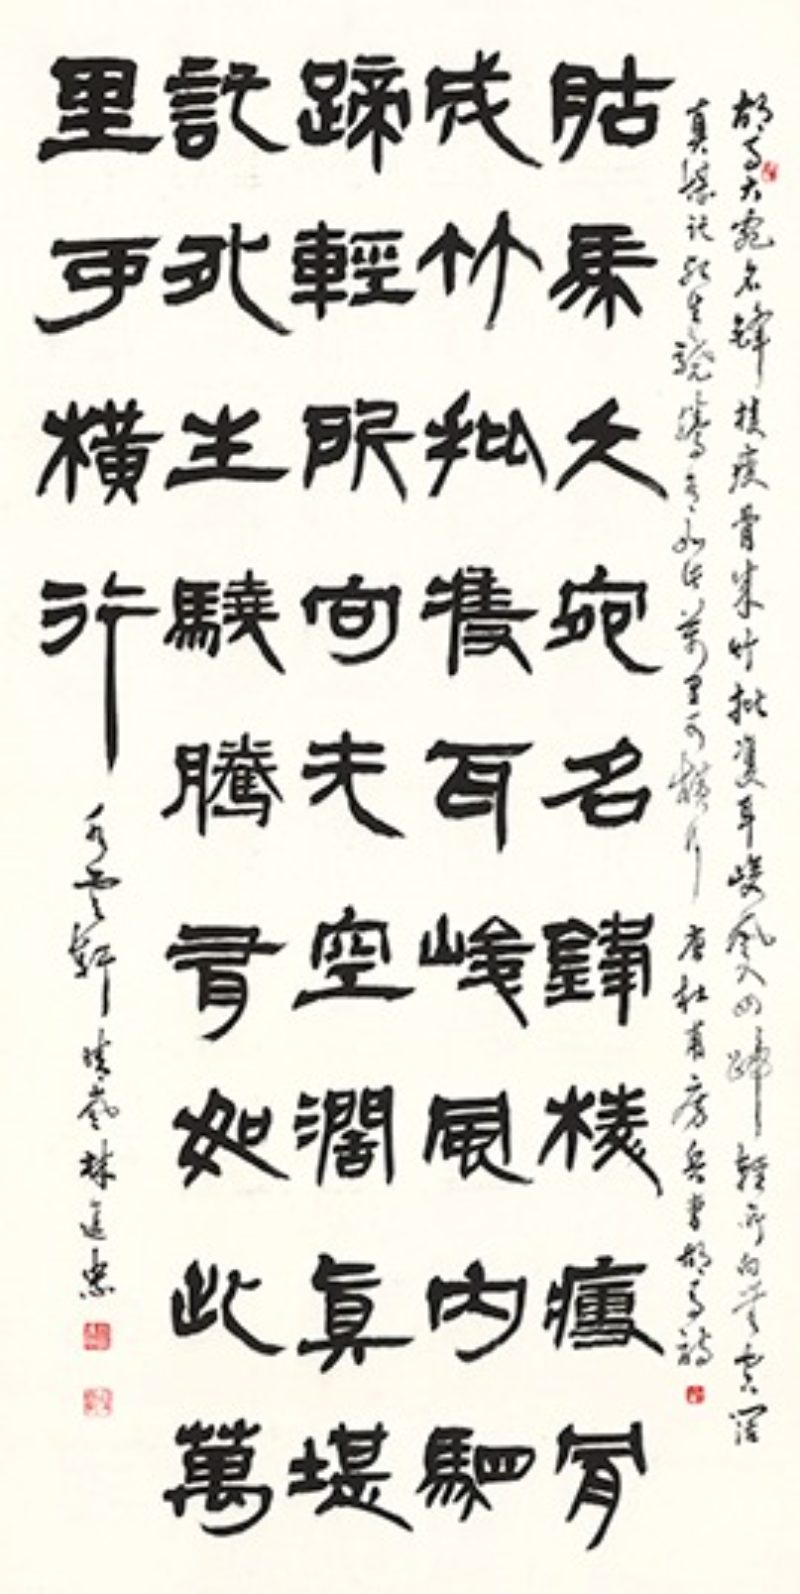 胡馬大宛名鋒棱瘦骨成竹批雙耳峻風入四蹄輕所向無空闊
真堪託死生驍騰有如此萬里可橫行 唐杜甫房兵曹胡馬詩
胡馬大宛名鋒棱瘦骨
成竹批雙耳峻風內駟
蹄輕所向无空濶真堪
託死生驍騰有如此萬
里可橫行
雲軒晴嵐林進忠